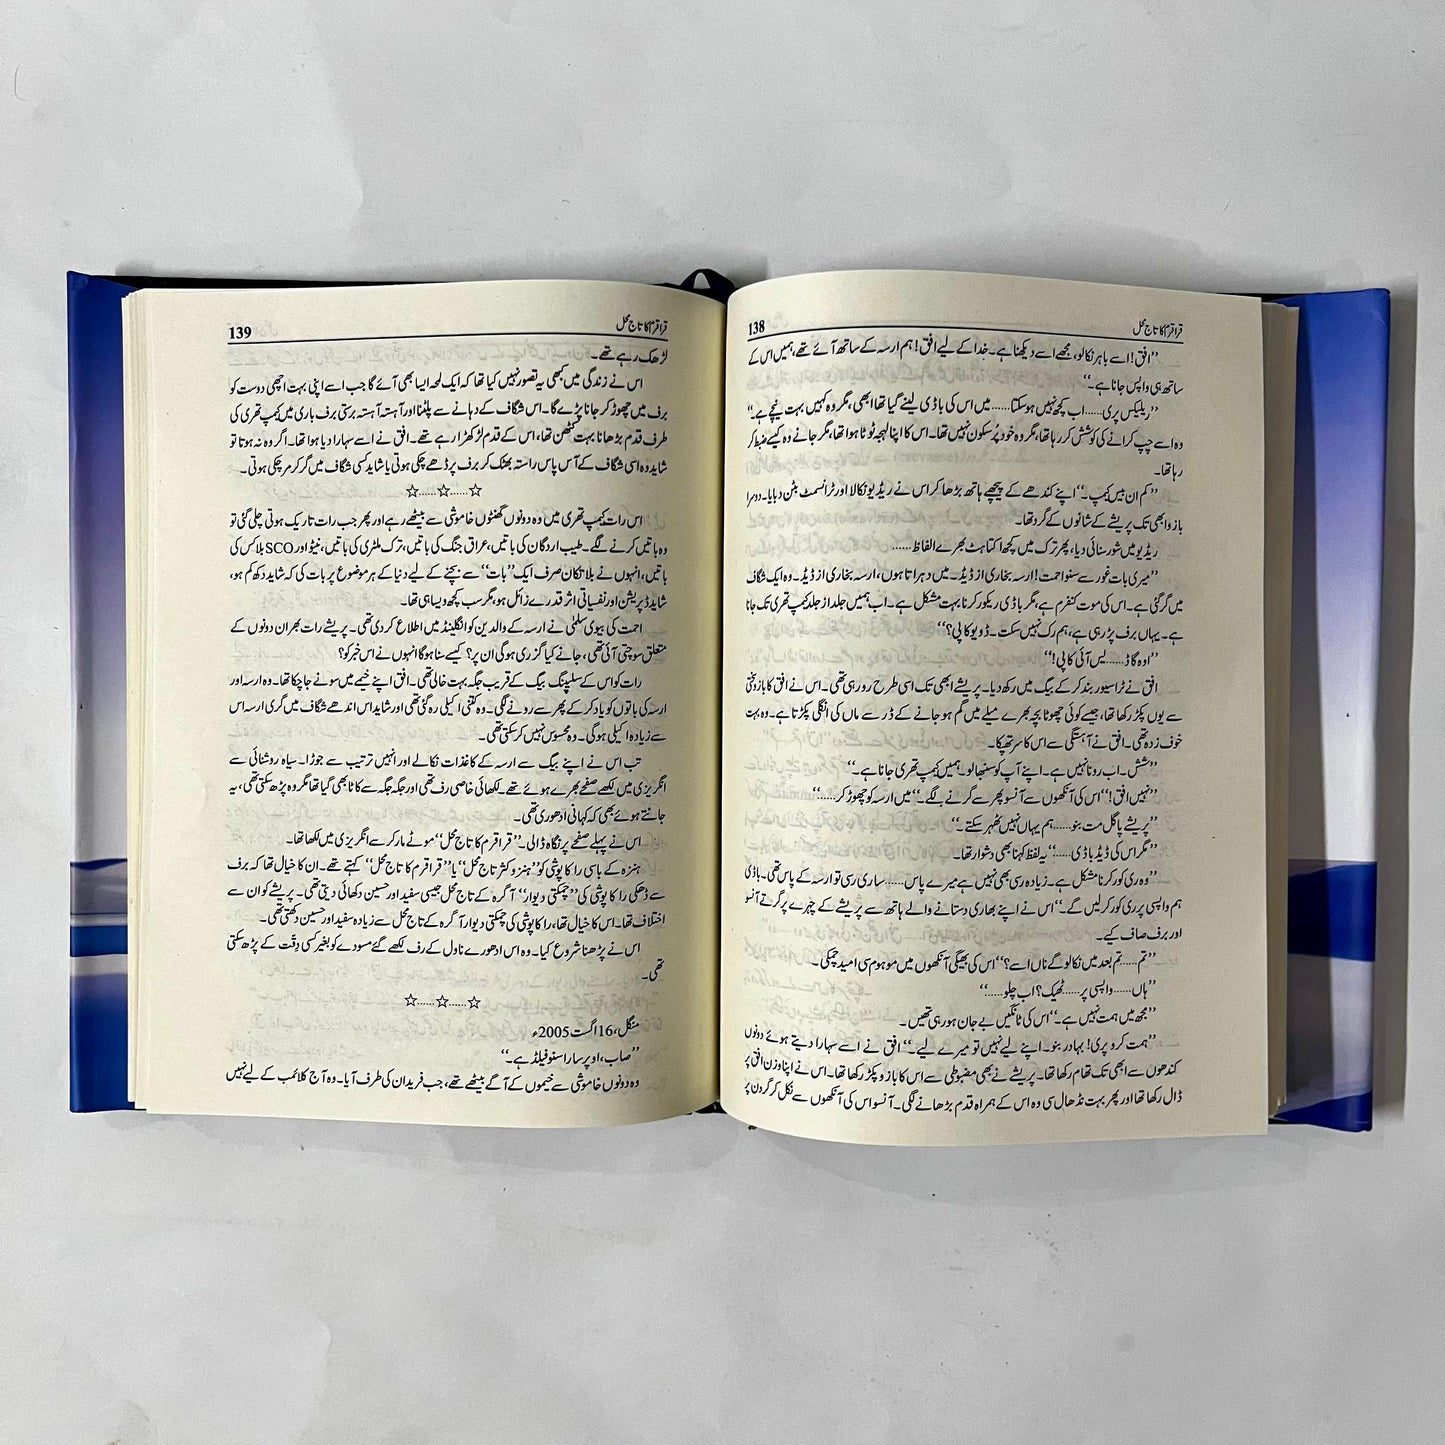 قراقرم کا تاج محل
138
’’افق! اسے باہر نکالو، مجھے اسے دیکھنا ہے۔ خدا کے لیے افق! ہم ارسہ کے ساتھ آئے تھے، ہمیں اس کے
ساتھ ہی واپس جانا ہے۔‘‘
’’ریلیکس پری...... اب کچھ نہیں ہو سکتا...... میں اس کی باڈی لینے گیا تھا ابھی، مگر وہ کہیں بہت نیچے ہے۔‘‘
وہ اسے چپ کرانے کی کوشش کر رہا تھا، مگر وہ خود پُرسکون نہیں تھا۔ اس کا اپنا لہجہ ٹوٹا ہوا تھا، مگر جانے وہ کیسے ضبط کر
رہا تھا۔
’’کم ان بیس کیمپ۔‘‘ اپنے کندھے کے پیچھے ہاتھ بڑھا کر اس نے ریڈیو نکالا اور ٹرانسمٹ بٹن دبایا۔ دوسرا
بازو ابھی تک پریشے کے شانوں کے گرد تھا۔
ریڈیو میں شور سنائی دیا، پھر ترک میں کچھ اکتاہٹ بھرے الفاظ......
’’میری بات غور سے سنو احمت! ارسہ بخاری از ڈیڈ۔ میں دہراتا ہوں، ارسہ بخاری از ڈیڈ۔ وہ ایک شگاف
میں گر گئی ہے۔ اس کی موت کنفرم ہے، مگر باڈی ریکور کرنا بہت مشکل ہے۔ اب ہمیں جلد از جلد کیمپ تھری تک جانا
ہے۔ یہاں برف پڑ رہی ہے، ہم رک نہیں سکتے۔ ڈو یو کاپی؟‘‘
’’اوہ گاڈ...... یس آئی کاپی!‘‘
افق نے ٹرانسیور بند کر کے بیگ میں رکھ دیا۔ پریشے ابھی تک اسی طرح رو رہی تھی۔ اس نے افق کا بازو سختی
سے یوں پکڑ رکھا تھا، جیسے کوئی چھوٹا بچہ بھرے میلے میں گم ہو جانے کے ڈر سے ماں کی انگلی پکڑتا ہے۔ وہ بہت
خوف زدہ تھی۔ افق نے آہستگی سے اس کا سر تھپکا۔
’’شش۔ اب رونا نہیں ہے۔ اپنے آپ کو سنبھالو۔ ہمیں کیمپ تھری جانا ہے۔‘‘
’’نہیں افق!‘‘ اس کی آنکھوں سے آنسو پھر سے گرنے لگے۔ ’’میں ارسہ کو چھوڑ کر......‘‘
’’پریشے پاگل مت بنو...... ہم یہاں نہیں ٹھہر سکتے۔‘‘
’’مگر اس کی ڈیڈ باڈی......‘‘ یہ لفظ کہنا بھی دشوار تھا۔
’’وہ ری کور کرنا مشکل ہے۔ زیادہ رسی بھی نہیں ہے میرے پاس...... ساری رسی تو ارسہ کے پاس تھی۔ باڈی
ہم واپسی پر ری کور کر لیں گے۔‘‘ اس نے اپنے بھاری دستانے والے ہاتھ سے پریشے کے چہرے پر گرتے آنسو
اور برف صاف کیے۔
’’تم...... تم بعد میں نکالو گے ناں اسے؟‘‘ اس کی بھیگی آنکھوں میں موہوم سی امید چمکی۔
’’ہاں...... واپسی پر...... ٹھیک؟ اب چلو......‘‘
’’مجھ میں ہمت نہیں ہے۔‘‘ اس کی ٹانگیں بے جان ہو رہی تھیں۔
’’ہمت کرو پری! بہادر بنو۔ اپنے لیے نہیں تو میرے لیے۔‘‘ افق نے اسے سہارا دیتے ہوئے دونوں
کندھوں سے ابھی تک تھام رکھا تھا۔ پریشے نے بھی مضبوطی سے اس کا بازو پکڑ رکھا تھا۔ اس نے اپنا وزن افق پر
ڈال رکھا تھا اور پھر بہت نڈھال سی وہ اس کے ہمراہ قدم بڑھانے لگی۔ آنسو اس کی آنکھوں سے نکل کر گردن پر
قراقرم کا تاج محل
139
لڑھک رہے تھے۔
اس نے زندگی میں کبھی یہ تصور نہیں کیا تھا کہ ایک لمحہ ایسا بھی آئے گا جب اسے اپنی بہت اچھی دوست کو
برف میں چھوڑ کر جانا پڑے گا۔ اس شگاف کے دہانے سے پلٹنا اور آہستہ آہستہ برستی برف باری میں کیمپ تھری کی
طرف قدم بڑھانا بہت کٹھن تھا، اس کے قدم لڑکھڑا رہے تھے۔ افق نے اسے سہارا دیا ہوا تھا۔ اگر وہ نہ ہوتا تو
شاید وہ اسی شگاف کے آس پاس راستہ بھٹک کر برف پر ڈھے چکی ہوتی یا شاید کسی شگاف میں گر کر مر چکی ہوتی۔
☆......☆......☆
اس رات کیمپ تھری میں وہ دونوں گھنٹوں خاموشی سے بیٹھے رہے اور پھر جب رات تاریک ہوتی چلی گئی تو
وہ باتیں کرنے لگے۔ طیب اردگان کی باتیں، عراق جنگ کی باتیں، ترک ملٹری کی باتیں، نیٹو اور SCO بلاکس کی
باتیں، انہوں نے بلا تکان صرف ایک ’’بات‘‘ سے بچنے کے لیے دنیا کے ہر موضوع پر بات کی کہ شاید دکھ کم ہو،
شاید ڈپریشن اور نفسیاتی اثر قدرے زائل ہو، مگر سب کچھ ویسا ہی تھا۔
احمت کی بیوی سلمیٰ نے ارسہ کے والدین کو انگلینڈ میں اطلاع کر دی تھی۔ پریشے رات بھر ان دونوں کے
متعلق سوچتی آئی تھی، جانے کیا گزری ہو گی ان پر؟ کیسے سنا ہو گا انہوں نے اس خبر کو؟
رات کو اس کے سلیپنگ بیگ کے قریب جگہ بہت خالی تھی۔ افق اپنے خیمے میں سونے جا چکا تھا۔ وہ ارسہ اور
ارسہ کی باتوں کو یاد کر کے پھر سے رونے لگی۔ وہ کتنی اکیلی رہ گئی تھی اور شاید اس اندھے شگاف میں گری ارسہ اس
سے زیادہ اکیلی ہو گی۔ وہ محسوس نہیں کر سکتی تھی۔
تب اس نے اپنے بیگ سے ارسہ کے کاغذات نکالے اور انہیں ترتیب سے جوڑا۔ سیاہ روشنائی سے
انگریزی میں لکھے صفحے بھرے ہوئے تھے۔ لکھائی خاصی رف تھی اور جگہ جگہ سے کاٹا بھی گیا تھا مگر وہ پڑھ سکتی تھی، یہ
جانتے ہوئے بھی کہ کہانی ادھوری تھی۔
اس نے پہلے صفحے پر نگاہ ڈالی۔ ’’قراقرم کا تاج محل‘‘ موٹے مارکر سے انگریزی میں لکھا تھا۔
ہنزہ کے باسی راکاپوشی کو ’’ہنزوکثر تاج محل‘‘ یا ’’قراقرم کا تاج محل‘‘ کہتے تھے۔ ان کا خیال تھا کہ برف
سے ڈھکی راکاپوشی کی ’’چمکتی دیوار‘‘ آگرہ کے تاج محل جیسی سفید اور حسین دکھائی دیتی تھی۔ پریشے کو ان سے
اختلاف تھا۔ اس کا خیال تھا، راکاپوشی کی چمکتی دیوار آگرہ کے تاج محل سے زیادہ سفید اور حسین دکھتی تھی۔
اس نے پڑھنا شروع کیا۔ وہ اس ادھورے ناول کے رف لکھے گئے مسودے کو بغیر کسی دقت کے پڑھ سکتی
تھی۔
☆......☆......☆
منگل، 16 اگست 2005ء
’’صاب، اوپر سارا سنو فیلڈ ہے۔‘‘
وہ دونوں خاموشی سے خیموں کے آگے بیٹھے تھے، جب فرید ان کی طرف آیا۔ وہ آج کلائمب کے لیے نہیں